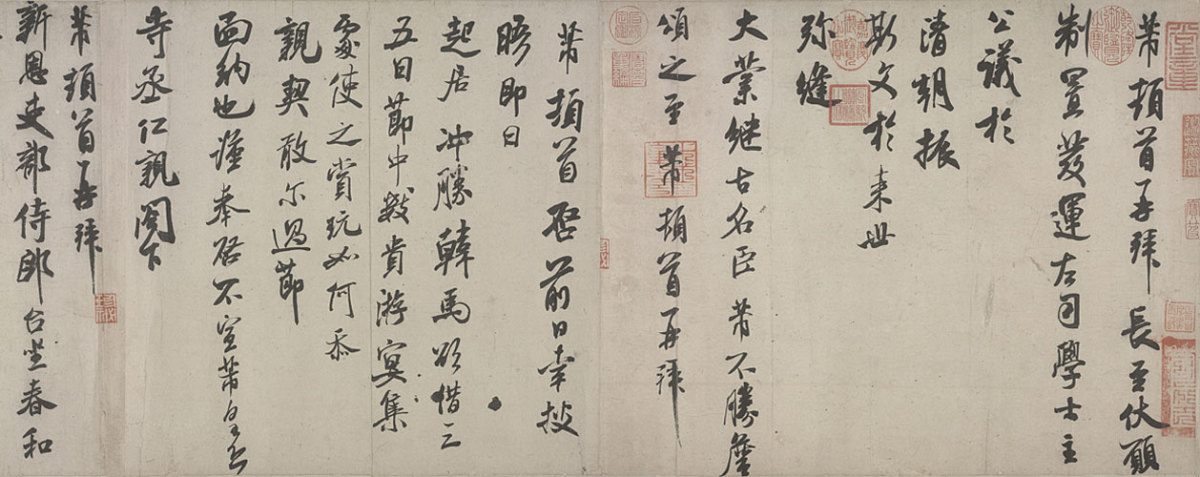 芾頓首再拜 長至伏願
制置發運左司學士主
公議於
清朝振
斯文於来世
弥縫
大業継古名臣芾不勝詹
頌之至 芾頓首再拜
芾頓首啓前日幸披
晤即日
起居冲勝韓馬欲借三
五日節中數貴游宴集
處使之賞玩如何忝
親契敢尔過節
面納也謹奉啓不宣芾皇恐
寺丞仁親閣下
芾頓首再拜
新恩吏部侍郎台坐春和